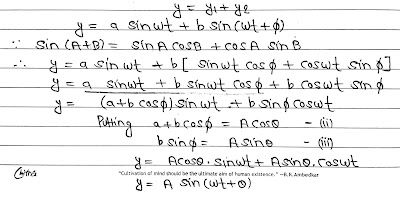 y = y₁ + y₂
y = a sinwt + b sin(wt + ϕ)
∵ sin (A+B) = sin A cosB + cosA sin B
∴ y = a sinwt + b [ sinwt cosϕ + coswt sinϕ]
y = a sinwt + b sinwt cosϕ + b coswt sinϕ
y = (a+b cosϕ) sinwt + b sinϕ coswt
Putting a+b cosϕ = A cosθ - (ii)
b sinϕ = A sinθ - (iii)
y = A cosθ. sinwt + A sinθ. coswt
"Cultivation of mind should be the ultimate aim of human existence." –B.R. Ambedkar
y = A sin (wt+θ)